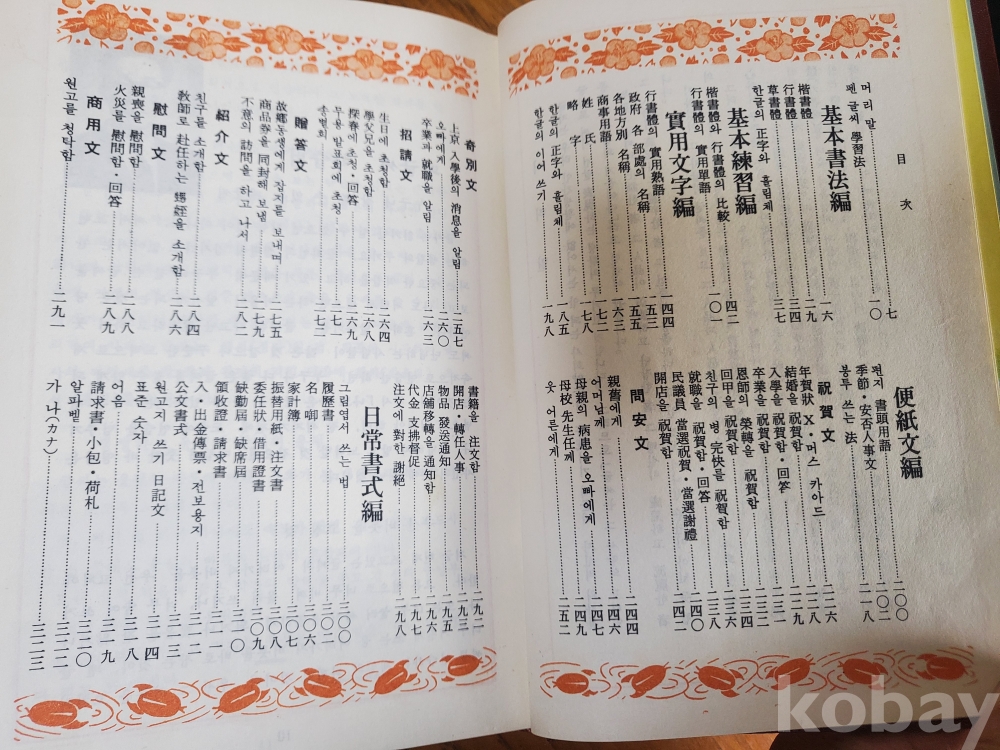 目次
머리말 七
펜 글씨 學習法 一〇
基本書法編
楷書體 一六
行書體 二九
草書體 三四
한글의 正字와 흘림체 三七
基本練習編
楷書體와 行書體의 比較 四二
行書體의 實用單語 一〇一
實用文字編
行書體의 實用熟語 一四四
政府 各 部處의 名稱 一五三
各地方別 名稱 一六三
商事用語
姓氏 一七二
略字 一七八
한글의 正字와 흘림체 一八五
한글의 이어 쓰기 一九八
便紙文編
편지 書頭用語 二〇〇
季節・安否人事文 二〇二
봉투 쓰는 法 二一八
祝賀文
年賀狀 X・머스 카아드 二二六
結婚을 祝賀함 二二八
入學을 祝賀함・回答 二二九
卒業을 祝賀함
恩師의 榮轉을 祝賀함 二三三
回甲을 祝賀함
친구의 병 完快를 祝賀함 二三六
就職을 祝賀함・回答 二三八
民議員 當選祝賀・當選謝禮 二四〇
開店을 祝賀함 二四二
問安文
親舊에게 二四四
어머님께
母親의 病患을 오빠에게 二四七
母校 先生任께 二四九
웃 어른에게 二五二
寄別文
上京 入學後의 消息을 알림 二五七
오빠에게 二六〇
卒業과 就職을 알림 二六三
招請文
生日에 초청함 二六四
學父兄을 초청함 二六八
探春에 초청・回答 二六九
무용 발표회에 초청 二七一
송별회 二七二
贈答文
故鄕동생에게 잡지를 보내며 二七五
商品券을 同封해 보냄 二七九
不意의 訪問을 하고 나서 二八二
紹介文
친구를 소개함 二八四
教師로 赴任하는 甥姪을 소개함 二八六
慰問文
親喪을 慰問함 二八八
火災를 慰問함・回答 二八九
商用文
원고를 청탁함 二九一
書籍을 注文함 二九二
開店・轉任人事 二九三
物品 發送通知 二九五
店舗移轉을 通知함 二九六
代金 支拂督促 二九七
注文에 對한 謝絶 二九八
日常書式編
그림엽서 쓰는 법 三〇〇
履歷書 三〇二
名啣 三〇六
家計簿 三〇七
振替用紙・注文書 三〇八
委任狀・借用證書 三〇九
缺勤屆・缺席屆 三一〇
領收證・請求書 三一一
入・出金傳票・전보용지 三一二
公文書式 三一三
원고지 쓰기 日記文 三一四
표준 숫자 三一七
어음 三一九
請求書・小包・荷札 三二〇
알파벨 三二二
가 나(カナ) 三二三
kobay